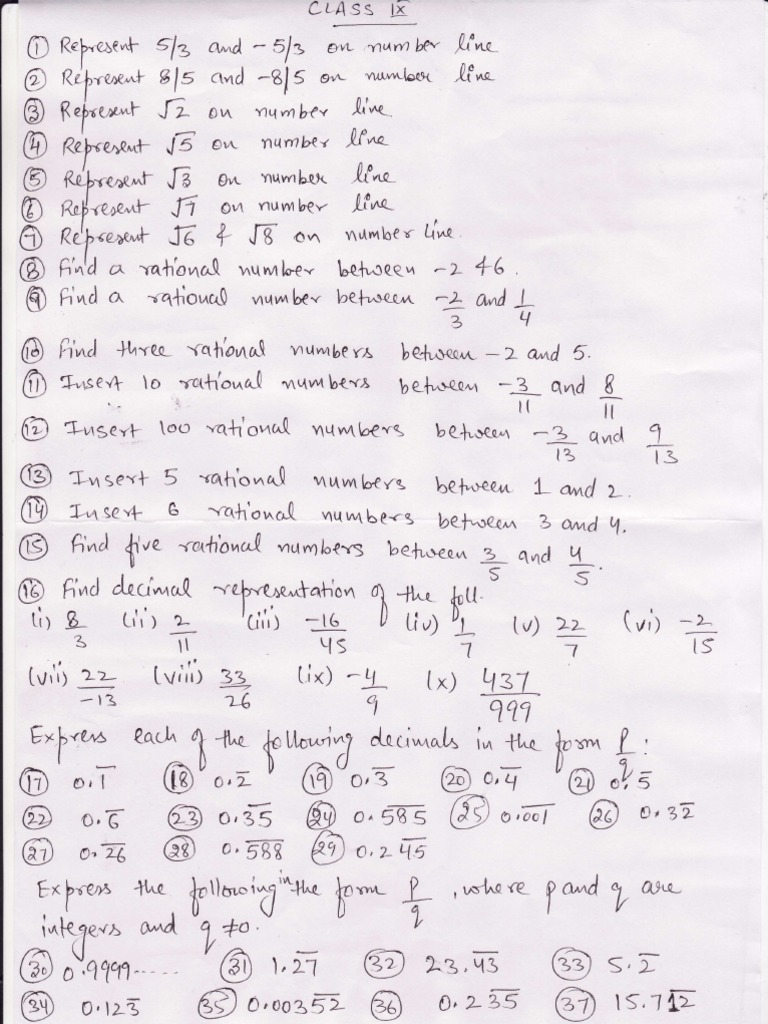 CLASS IX
① Represent 5/3 and -5/3 on number line
② Represent 8/5 and -8/5 on number line
③ Represent √2 on number line
④ Represent √5 on number line
⑤ Represent √3 on number line
⑥ Represent √7 on number line
⑦ Represent √6 & √8 on number line.
⑧ Find a rational number between -2 & 6.
⑨ Find a rational number between -2/3 and 1/4
⑩ Find three rational numbers between -2 and 5.
⑪ Insert 10 rational numbers between -3/11 and 8/11
⑫ Insert 100 rational numbers between -3/13 and 9/13
⑬ Insert 5 rational numbers between 1 and 2.
⑭ Insert 6 rational numbers between 3 and 4.
⑮ Find five rational numbers between 3/5 and 4/5.
⑯ Find decimal representation of the foll.
(i) 8/3 (ii) 2/11 (iii) -16/45 (iv) 1/7 (v) 22/7 (vi) -2/15
(vii) 22/-13 (viii) 33/26 (ix) -4/9 (x) 437/999
Express each of the following decimals in the form P/q :
⑰ 0.1̅ ⑱ 0.2̅ ⑲ 0.3̅ ⑳ 0.4̅ ㉑ 0.5̅
㉒ 0.6̅ ㉓ 0.3̅5̅ ㉔ 0.5̅8̅5̅ ㉕ 0.0̅0̅1̅ ㉖ 0.32̅
㉗ 0.2̅6̅ ㉘ 0.5̅8̅8̅ ㉙ 0.24̅5̅
Express the following in the form P/q , where p and q are
integers and q ≠0.
㉚ 0.9999..... ㉛ 1.2̅7̅ ㉜ 23.4̅3̅ ㉝ 5.2̅
㉞ 0.123̅ ㉟ 0.003̅5̅2̅ ㊱ 0.23̅5̅ ㊲ 15.71̅2̅